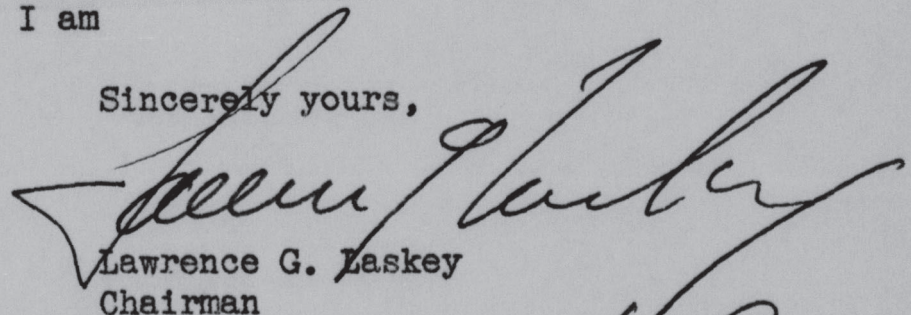 I am
Sincerely yours,
Lawrence G. Laskey
Chairman